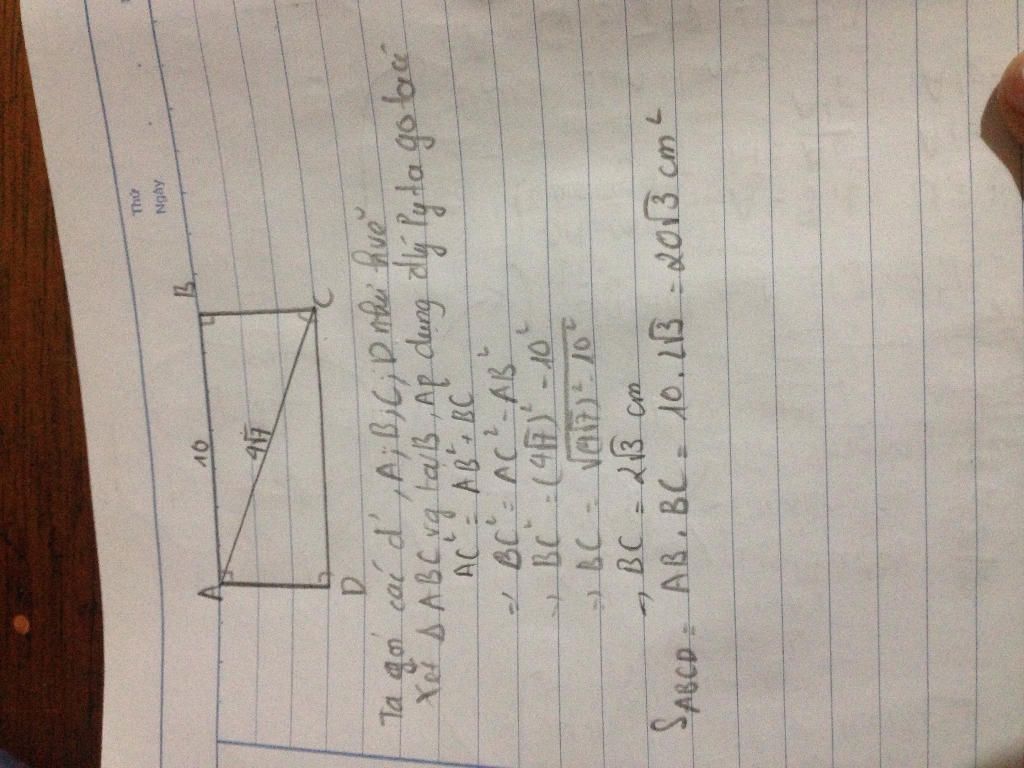 Thứ
Ngày
A 10 B
4√7
D C
Ta gọi các đ', A; B; C; D như hvẽ
Xét Δ ABC vg tại B, Áp dụng đlý Pytago ta có
AC² = AB² + BC
=> BC² = AC² - AB²
=> BC² = (4√7)² - 10²
=> BC = √(4√7)² - 10²
=> BC = 2√3 cm
S_ABCD = AB . BC = 10 . 2√3 = 20√3 cm²